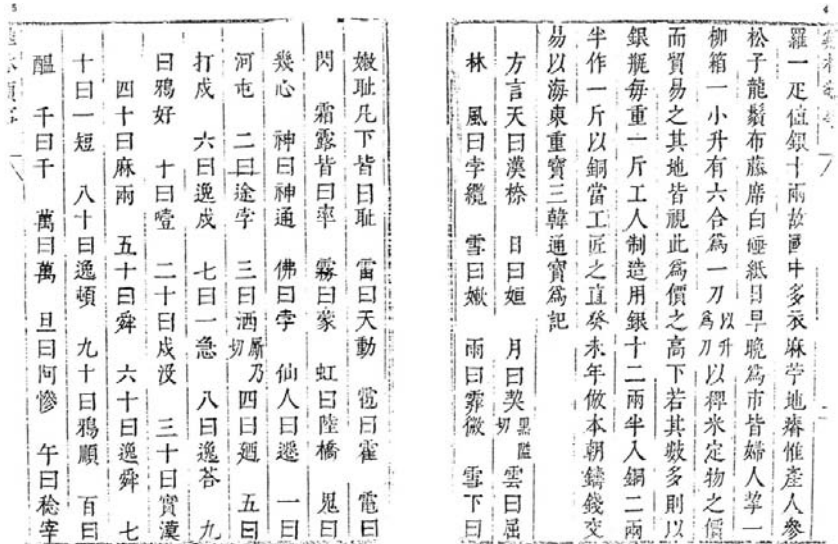 羅一疋値銀十兩故國中多衣麻苧地瘠惟產人參
松子龍鬚布藤席白硾紙日早晚爲市皆婦人挈一
柳箱一小升有六合爲一刀以升爲刀以稗米定物之價
而貿易之其地皆視此爲價之高下若其數多則以
銀甁每重一斤工人制造用銀十二兩半入銅二兩
半作一斤以銅當工匠之直癸未年倣本朝鑄錢交
易以海東重寶三韓通寶爲記
方言天曰漢㮈 日曰姮 月曰契黑隘切 雲曰屈
林 風曰孛纜 雪曰嫩 雨曰霏微 雪下曰
嫩耻凡下皆曰耻 雷曰天動 雹曰霍 電曰
閃 霜露皆曰率 霧曰蒙 虹曰陸橋 鬼曰
幾心 神曰神通 佛曰孛 仙人曰遷 一曰
河屯 二曰途孛 三曰洒厮乃切 四曰廼 五曰
打戍 六曰逸戍 七曰一急 八曰逸荅 九
曰鴉好 十曰噎 二十曰戍沒 三十曰實漢
四十曰麻兩 五十曰舜 六十曰逸舜 七
十曰一短 八十曰逸頓 九十曰鴉順 百曰
醞 千曰千 萬曰萬 旦曰阿慘 午曰稔宰